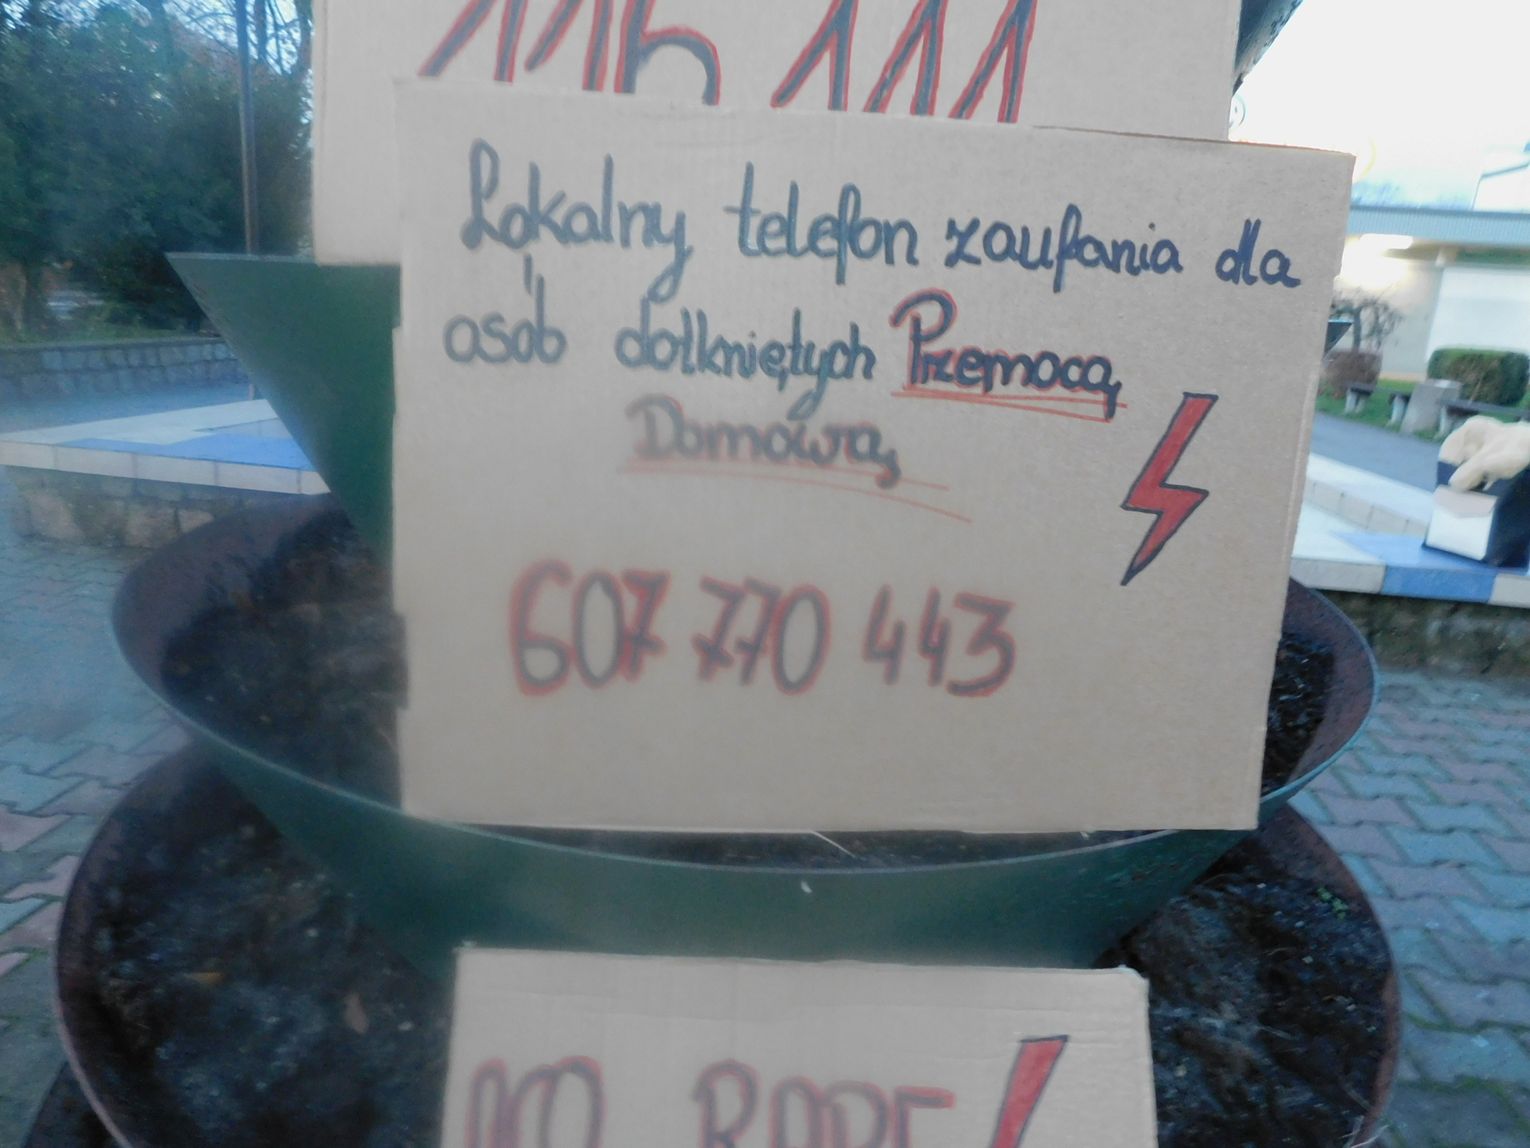 116 111
Lokalny telefon zaufania dla
osób dotkniętych Przemocą
Domową
607 770 443
NO RAPE!